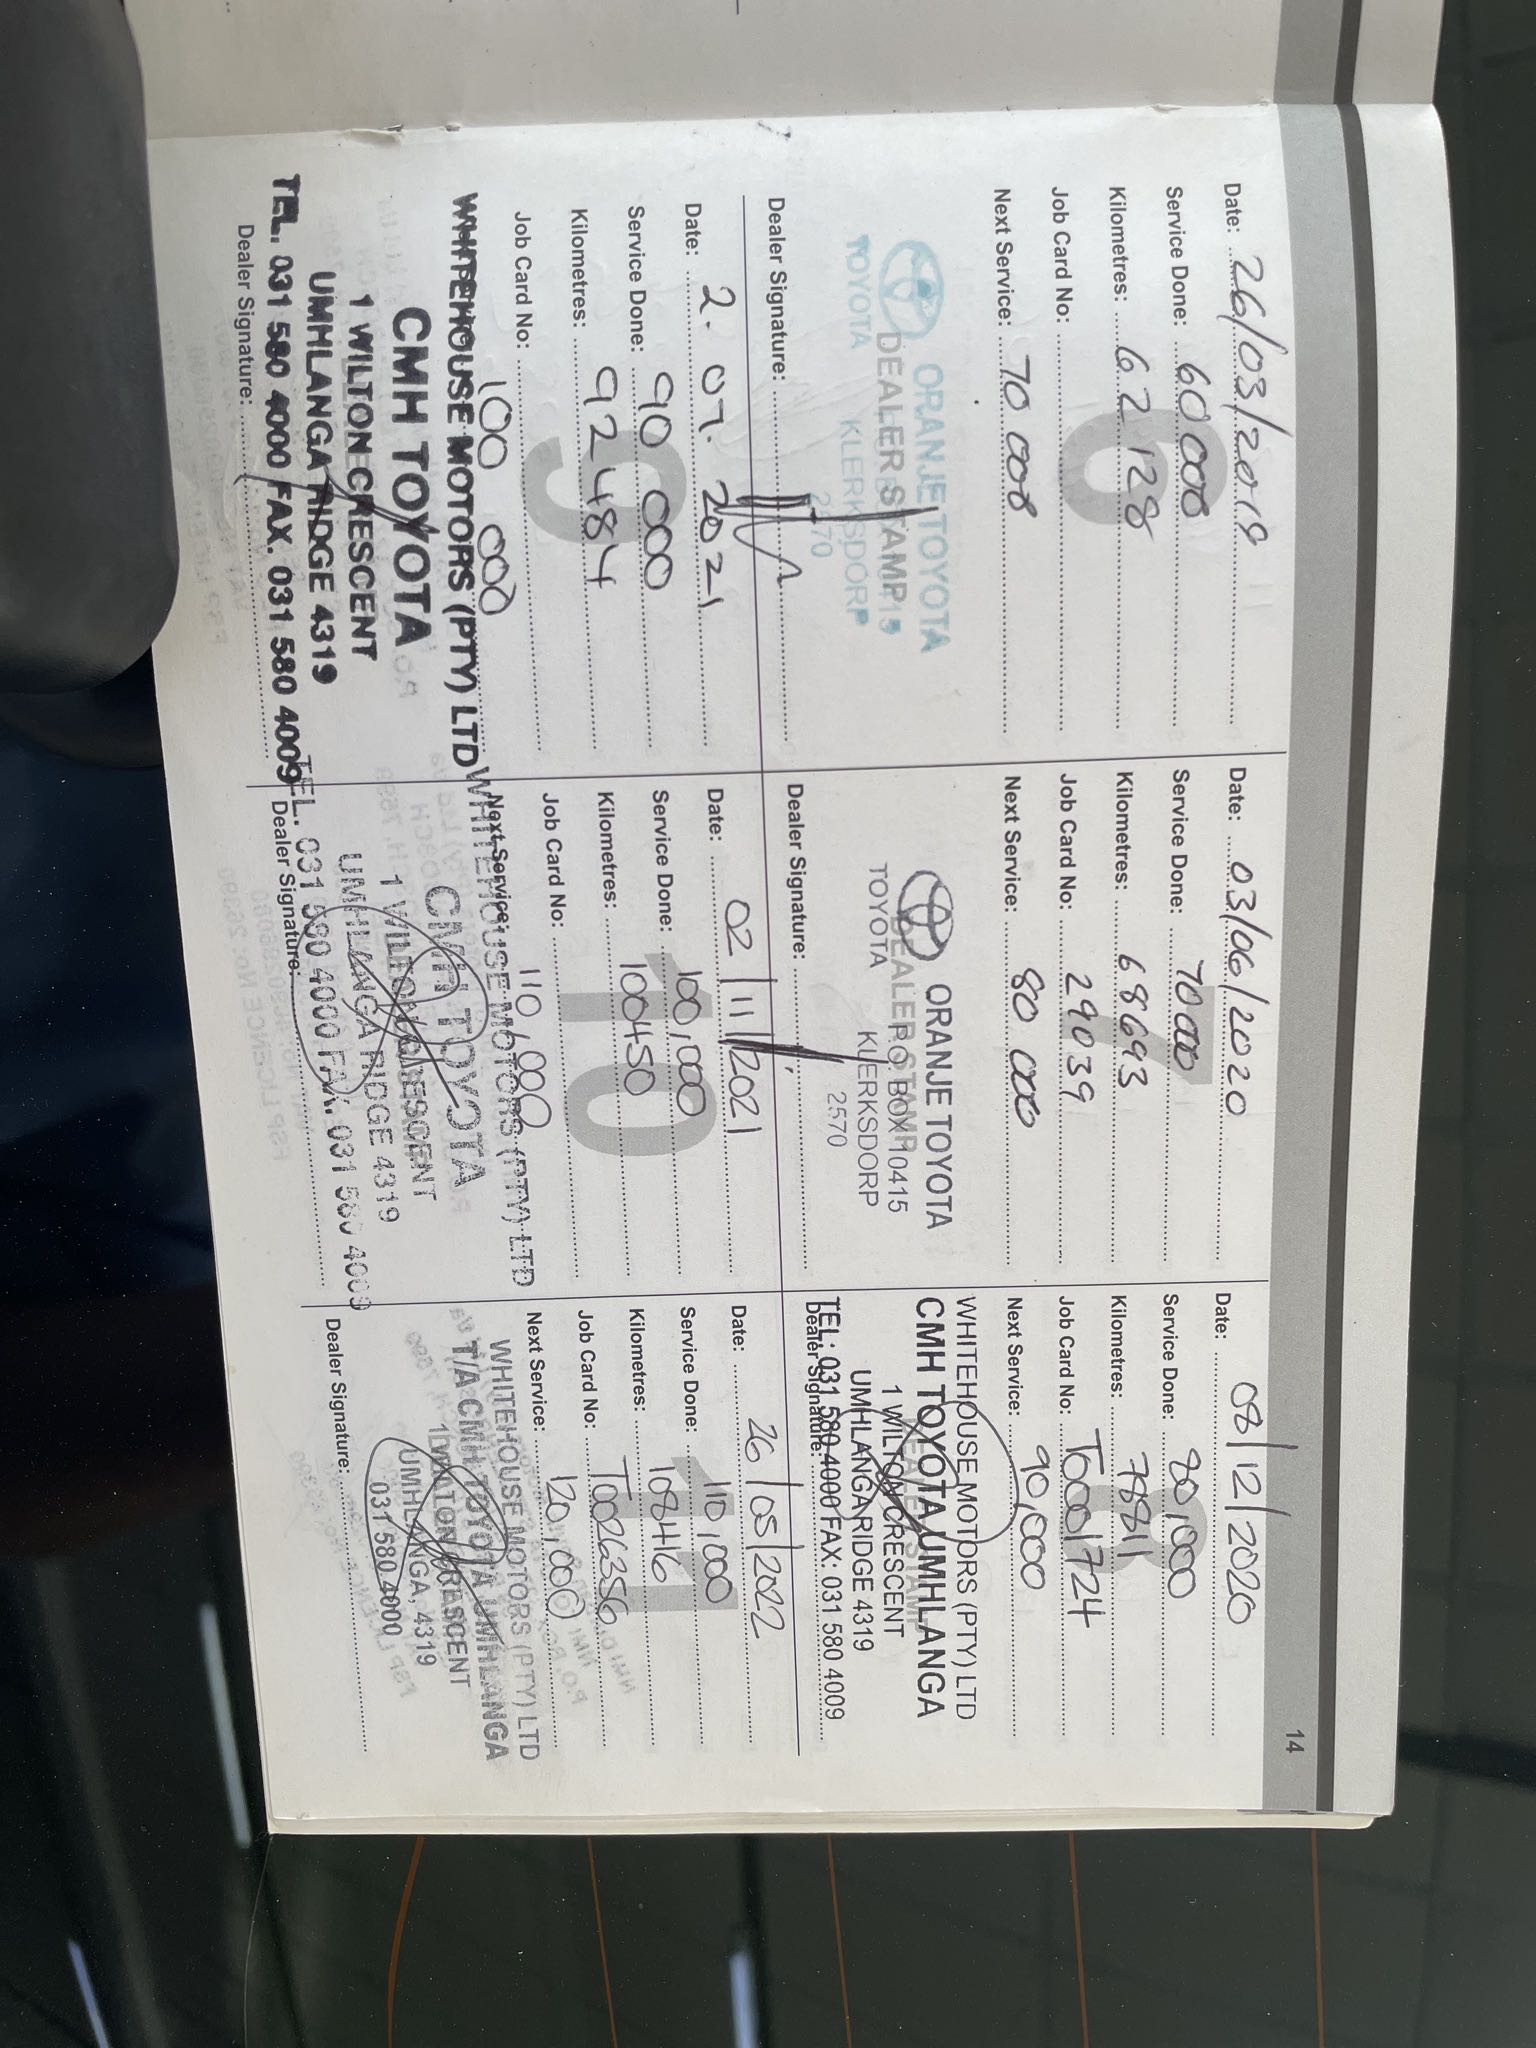 14
6
Date: 26/03/2019
Service Done: 60 000
Kilometres: 62 128
Job Card No:
Next Service: 70 000
ORANJE TOYOTA
DEALER STAMP
TOYOTA KLERKSDORP
2570
Dealer Signature:
7
Date: 03/06/2020
Service Done: 70 000
Kilometres: 68693
Job Card No: 29039
Next Service: 80 000
ORANJE TOYOTA
DEALER STAMP
P.O. BOX 10415
TOYOTA KLERKSDORP
2570
Dealer Signature:
8
Date: 08/12/2020
Service Done: 80,000
Kilometres: 78811
Job Card No: T0001724
Next Service: 90,000
WHITEHOUSE MOTORS (PTY) LTD
CMH TOYOTA UMHLANGA
DEALER STAMP
1 WILTON CRESCENT
UMHLANGA RIDGE 4319
TEL: 031 580 4000 FAX: 031 580 4009
Dealer Signature:
9
Date: 2. 07. 2021
Service Done: 90 000
Kilometres: 92484
Job Card No:
100 000
WHITEHOUSE MOTORS (PTY) LTD
CMH TOYOTA
1 WILTON CRESCENT
UMHLANGA RIDGE 4319
TEL. 031 580 4000 FAX. 031 580 4009
Dealer Signature:
10
Date: 02/11/2021
Service Done: 100,000
Kilometres: 100450
Job Card No:
Next Service: 110,000
WHITEHOUSE MOTORS (PTY) LTD
CMH TOYOTA
1 WILTON CRESCENT
UMHLANGA RIDGE 4319
TEL. 031 580 4000 FAX. 031 580 4009
Dealer Signature:
11
Date: 26/05/2022
Service Done: 110,000
Kilometres: 108416
Job Card No: T0026356
Next Service: 120,000
WHITEHOUSE MOTORS (PTY) LTD
T/A CMH TOYOTA UMHLANGA
1 WILTON CRESCENT
UMHLANGA, 4319
031 580 4000
Dealer Signature: